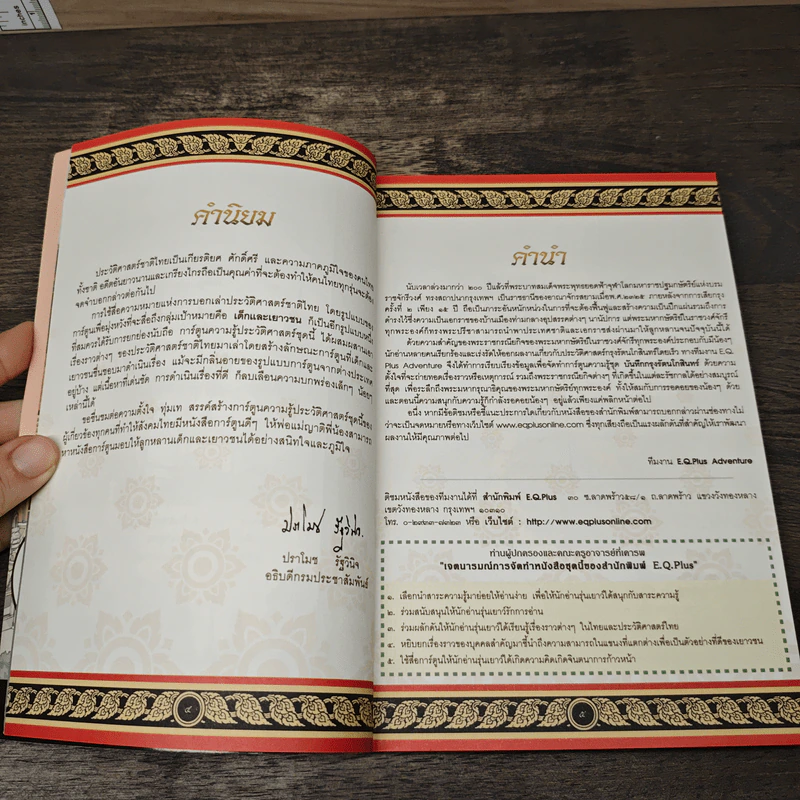 inches
คำนิยม
ประวัติศาสตร์ชาติไทยเป็นเกียรติยศ ศักดิ์ศรี และความภาคภูมิใจของคนไทย
ทั้งชาติ อดีตอันยาวนานและเกรียงไกรถือเป็นคุณค่าที่จะต้องทำให้คนไทยทุกรุ่นจะต้อง
จดจำบอกกล่าวต่อกันไป
การใช้สื่อความหมายแห่งการบอกเล่าประวัติศาสตร์ชาติไทย โดยรูปแบบของ
การ์ตูนเพื่อมุ่งหวังที่จะสื่อถึงกลุ่มเป้าหมายคือ เด็กและเยาวชน ก็เป็นอีกรูปแบบหนึ่ง
ที่สมควรได้รับการยกย่องนับถือ การ์ตูนความรู้ประวัติศาสตร์ชุดนี้ ได้ผสมผสานเอา
เรื่องราวต่างๆ ของประวัติศาสตร์ชาติไทยมาเล่าโดยสร้างลักษณะการ์ตูนที่เด็กและ
เยาวชนชื่นชอบมาดำเนินเรื่อง แม้จะมีกลิ่นอายของรูปแบบการ์ตูนจากต่างประเทศ
อยู่บ้าง แต่เนื้อหาที่เด่นชัด การดำเนินเรื่องที่ดี ก็ลบเลือนความบกพร่องเล็กๆ น้อยๆ
เหล่านี้ได้
ขอชื่นชมต่อความตั้งใจ ทุ่มเท สรรค์สร้างการ์ตูนความรู้ประวัติศาสตร์ชุดนี้ของ
ผู้เกี่ยวข้องทุกคนที่ทำให้สังคมไทยมีหนังสือการ์ตูนดีๆ ให้พ่อแม่ญาติพี่น้องสามารถ
หาหนังสือการ์ตูนมอบให้ลูกหลานเด็กและเยาวชนได้อย่างสนิทใจและภูมิใจ
ปราโมช รัฐวินิจ
ปราโมช รัฐวินิจ
อธิบดีกรมประชาสัมพันธ์
๔
คำนำ
นับเวลาล่วงมากว่า ๒๐๐ ปีแล้วที่พระบาทสมเด็จพระพุทธยอดฟ้าจุฬาโลกมหาราชปฐมกษัตริย์แห่งบรม
ราชจักรีวงศ์ ทรงสถาปนากรุงเทพฯ เป็นราชธานีของอาณาจักรสยามเมื่อพ.ศ.๒๓๒๕ ภายหลังจากการเสียกรุง
ครั้งที่ ๒ เพียง ๑๕ ปี ถือเป็นภาระอันหนักหน่วงในการที่จะต้องฟื้นฟูและสร้างความเป็นปึกแผ่นรวมถึงการ
ดำรงไว้ซึ่งความเป็นเอกราชของบ้านเมืองท่ามกลางอุปสรรคต่างๆ นานัปการ แต่พระมหากษัตริย์ในราชวงศ์จักรี
ทุกพระองค์ก็ทรงพระปรีชาสามารถนำพาประเทศชาติและเอกราชส่งผ่านมาให้ลูกหลานจนปัจจุบันนี้ได้
ด้วยความสำคัญของพระราชกรณียกิจของพระมหากษัตริย์ในราชวงศ์จักรีทุกพระองค์ประกอบกับมีน้องๆ
นักอ่านหลายคนเรียกร้องและเร่งรัดให้ออกผลงานเกี่ยวกับประวัติศาสตร์กรุงรัตนโกสินทร์โดยเร็ว ทางทีมงาน E.Q.
Plus Adventure จึงได้ทำการเรียบเรียงข้อมูลเพื่อจัดทำการ์ตูนความรู้ชุด บันทึกกรุงรัตนโกสินทร์ ด้วยความ
ตั้งใจที่จะถ่ายทอดเรื่องราวหรือเหตุการณ์ รวมถึงพระราชกรณียกิจต่างๆ ที่เกิดขึ้นในแต่ละรัชกาลได้อย่างสมบูรณ์
ที่สุด เพื่อระลึกถึงพระมหากรุณาธิคุณแห่งพระมหากษัตริย์ทุกพระองค์ ทั้งให้สมกับการรอคอยของน้องๆ ด้วย
และตอนนี้ความสนุกกับความรู้ก็กำลังรอคอยน้องๆ อยู่แล้วเพียงแค่พลิกหน้าต่อไป
อนึ่ง หากมีข้อติชมหรือชี้แนะประการใดเกี่ยวกับหนังสือของสำนักพิมพ์สามารถบอกกล่าวผ่านช่องทางไม่
ว่าจะเป็นจดหมายหรือทางเว็บไซต์ www.eqplusonline.com ซึ่งทุกเสียงถือเป็นแรงผลักดันที่สำคัญให้เราพัฒนา
ผลงานให้มีคุณภาพต่อไป
ทีมงาน E.Q.Plus Adventure
ติชมหนังสือของทีมงานได้ที่ สำนักพิมพ์ E.Q.Plus ๓๐ ซ.ลาดพร้าว๕๘/๑ ถ.ลาดพร้าว แขวงวังทองหลาง
เขตวังทองหลาง กรุงเทพฯ ๑๐๓๑๐
หรือ เว็บไซต์ : http://www.eqplusonline.com
ท่านผู้ปกครองและคณะครูอาจารย์ที่เคารพ
"เจตนารมณ์การจัดทำหนังสือชุดนี้ของสำนักพิมพ์ E.Q.Plus"
๑. เลือกนำสาระความรู้มาย่อยให้อ่านง่าย เพื่อให้นักอ่านรุ่นเยาว์ได้สนุกกับสาระความรู้
๒. ร่วมสนับสนุนให้นักอ่านรุ่นเยาว์รักการอ่าน
๓. ร่วมผลักดันให้นักอ่านรุ่นเยาว์ได้เรียนรู้เรื่องราวต่างๆ ในไทยและประวัติศาสตร์ไทย
๔. หยิบยกเรื่องราวของบุคคลสำคัญมาชี้นำถึงความสามารถในแขนงที่แตกต่างเพื่อเป็นตัวอย่างที่ดีของเยาวชน
๕. ใช้สื่อการ์ตูนให้นักอ่านรุ่นเยาว์ได้เกิดความคิดเกิดจินตนาการก้าวหน้า
๕